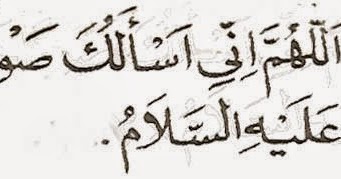 اَللّٰهُمَّ اِنِّي اَسْأَلُكَ صَوْ
عَلَيْهِ السَّلَامُ.